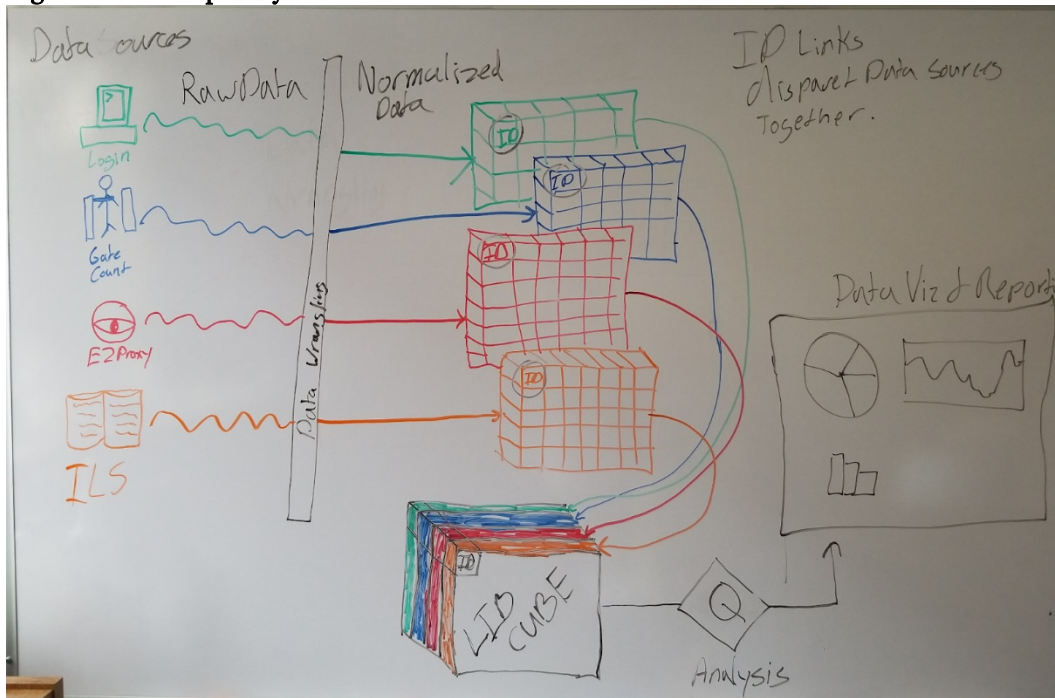 Data Sources
Raw Data
Normalized
Data
ID Links
disparet Data Sources
Together.
Login
ID
Gate
Count
ID
EZProxy
ID
ILS
ID
Data Wrangling
Data Viz & Report
ID
LIB
CUBE
Q
Analysis